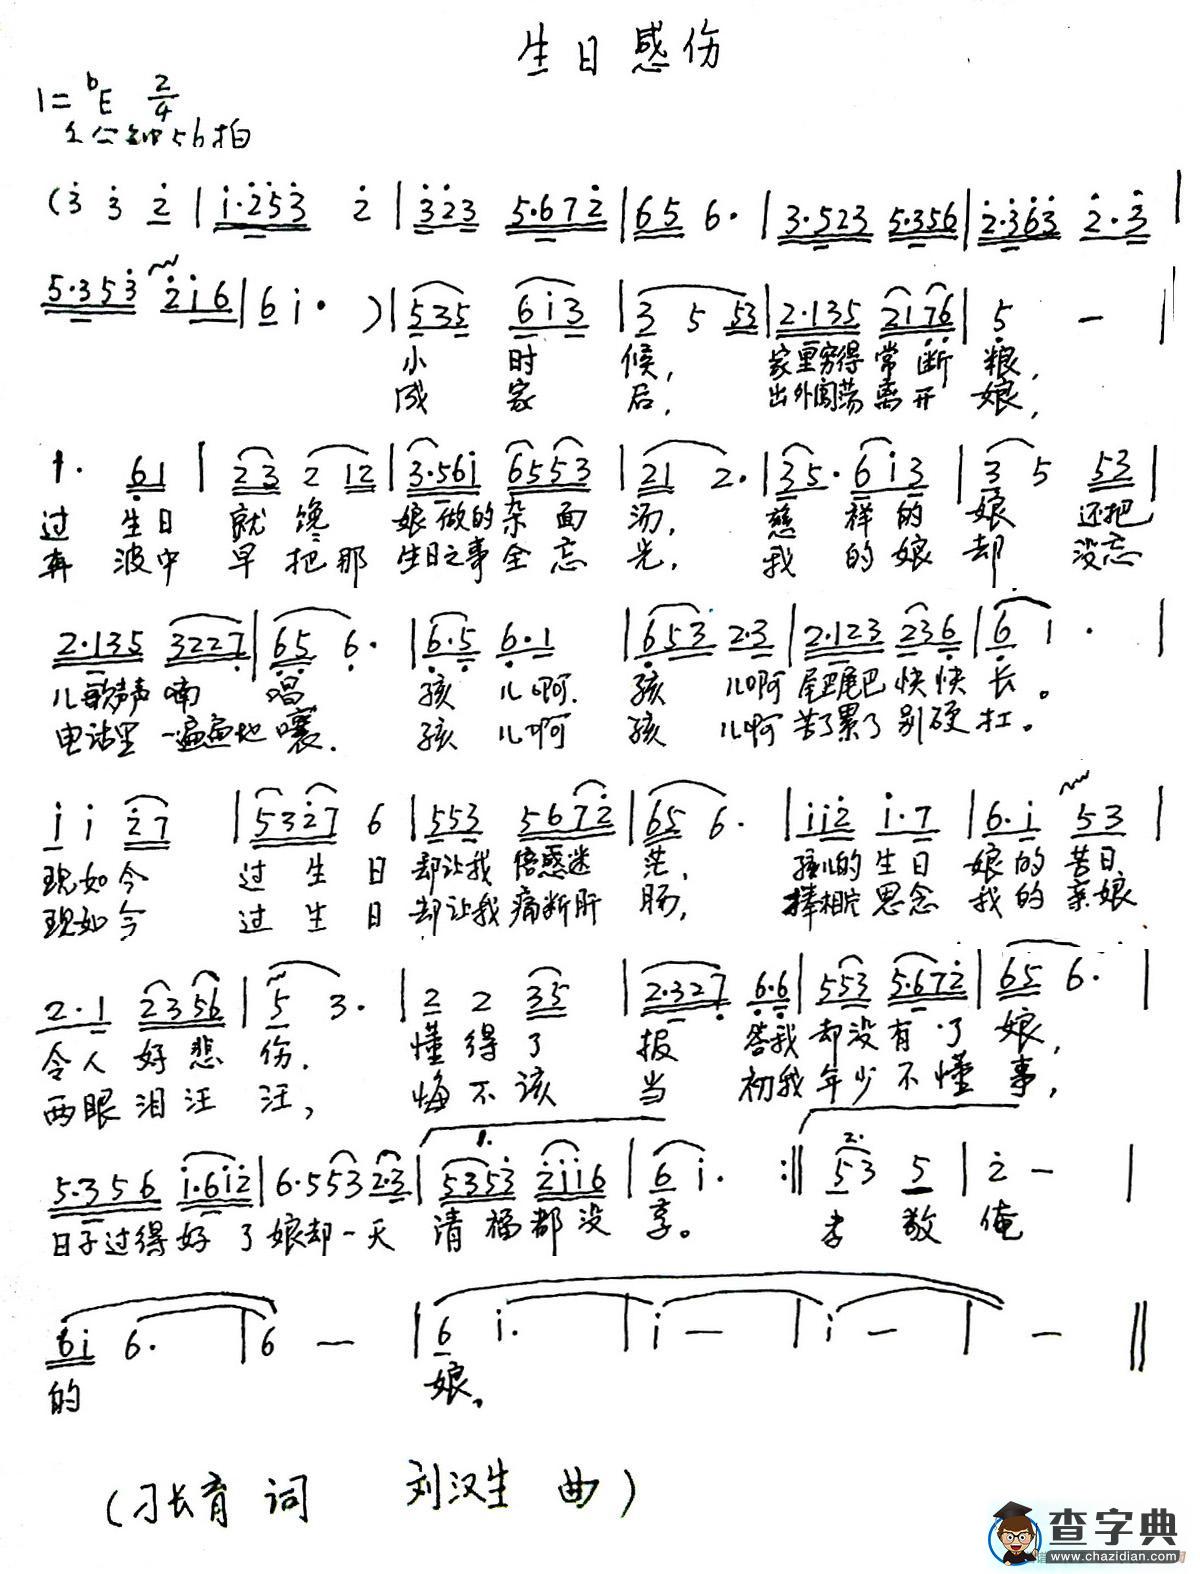 生日感伤
1=ᵇE 2/4
每分钟56拍
(3̇ 3̇ 2̇ | 1̇·2̇53̇ 2̇ | 3̇2̇3̇ 5·672̇ | 65 6· | 3·523 5·356 | 2̇·3̇6̇3̇ 2̇·3̇ |
5·353̇ 2̇1̇6 | 61̇· ) | 535 61̇3 | 3 5 53 | 2·135 217̣6̣ | 5̣ — |
小 时 候, 家里穷得常断粮,
成 家 后, 出外闯荡离开娘,
1· 6̣1 | 23 2 12 | 3·561̇ 6553 | 21 2· | 35· 61̇3 | 3 5 53 |
过 生日 就馋 娘做的杂面汤, 慈祥的娘 还把
奔 波中 早把那 生日之事全忘光, 我的娘却 没忘
2·135 3227̣ | 6̣5̣ 6̣· | 6̣·5̣ 6̣·1 | 6̣53 2·3 | 2·123 236̣ | 6̣ 1 · |
儿歌声喃唱 孩儿啊. 孩儿啊 尾巴尾巴快快长。
电话里一遍遍地嚷. 孩儿啊 孩儿啊 苦了累了别硬扛。
1̇ 1̇ 2̇7 | 532̇7 6 | 553 5672̇ | 65 6· | 1̇1̇2̇ 1̇·7 | 6·1̇ 53 |
现如今 过生日 却让我倍感迷茫, 孩儿的生日 娘的苦日
现如今 过生日 却让我痛断肝肠, 捧相片思念 我的亲娘
2·1 2356 | 5 3· | 2 2 35 | 2·327̣ 6̣·6̣ | 553 5·672̇ | 65 6· |
令人好悲伤. 懂得了报答我却没有了娘,
两眼泪汪汪, 悔不该当初我年少不懂事,
1. 2.
5·356 1̇·61̇2̇ | 6·553 2·3 | 5353̇ 2̇1̇1̇6 | 6 1̇· :‖ 53 5 | 2̇ — |
日子过得好了娘却一天清福都没享。 孝敬俺
61̇ 6· | 6 — | 6 1̇· | 1̇ — | 1̇ — | — ‖
的 娘。
(刁长育 词 刘汉生 曲)
查字典
www.chazidian.com